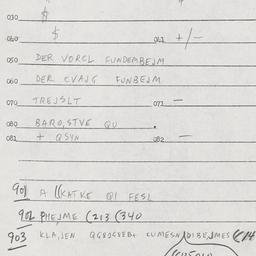 030 $
040 $ 041 +/-
050 DER VORCL FUNDEMBEJM
060 DER CVAJG FUNBEJM
070 TREJSLT 071 -
080 BARO,STVE QU .
081 + QSYN 082 -
901 A ((KATKE QI FESL
902 PHEJME (213 (340
903 KLA,JEN CUMESN